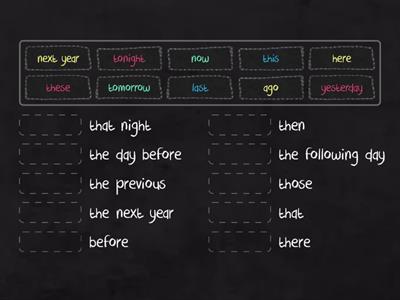 next year tonight now this here
these tomorrow last ago yesterday
that night then
the day before the following day
the previous those
the next year that
before there